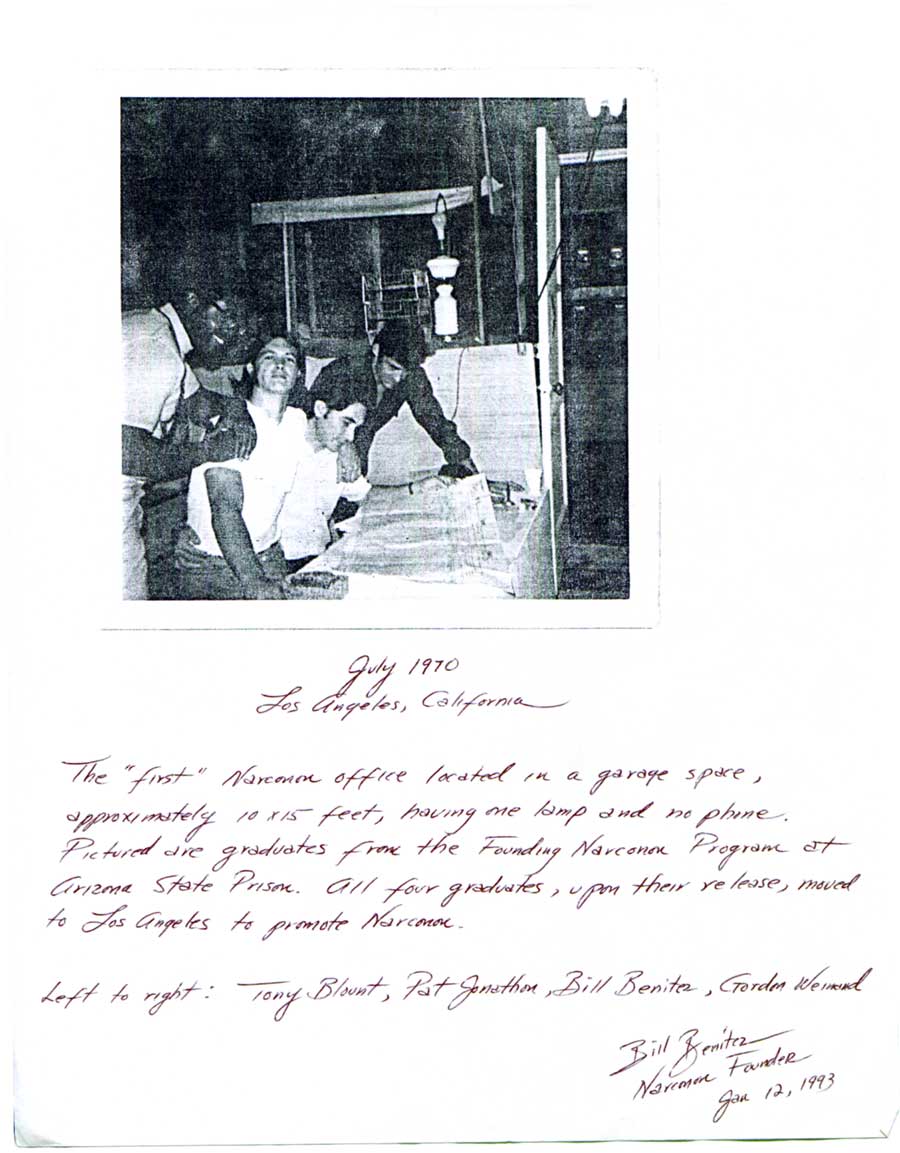 July 1970
Los Angeles, California
The "first" Narconon office located in a garage space,
approximately 10 x 15 feet, having one lamp and no phone.
Pictured are graduates from the Founding Narconon Program at
Arizona State Prison. All four graduates, upon their release, moved
to Los Angeles to promote Narconon.
Left to right: Tony Blount, Pat Jonathon, Bill Benitez, Gordon
Bill Benitez
Narconon Founder
Jan 12, 1993